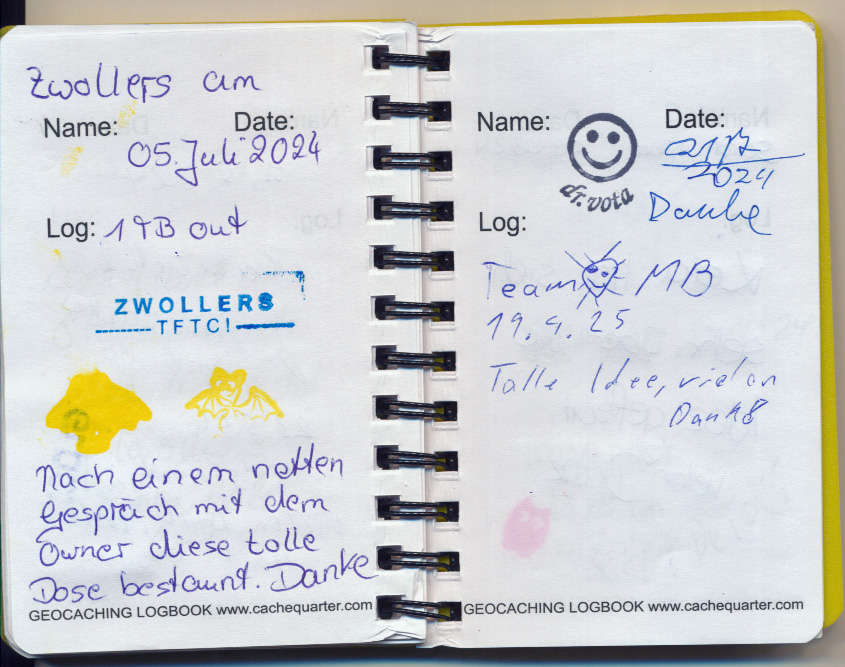 Zwollers am
Name: Date:
05. Juli 2024
Log: 1 TB out
ZWOLLERS
TFTC!
Nach einem netten
Gespräch mit dem
Owner diese tolle
Dose bestaunt. Danke
GEOCACHING LOGBOOK www.cachequarter.com
Name: Date:
dr.vota
2024
Danke
Log:
Team MB
19.4.25
Tolle Idee, vielen
Dank
GEOCACHING LOGBOOK www.cachequarter.com